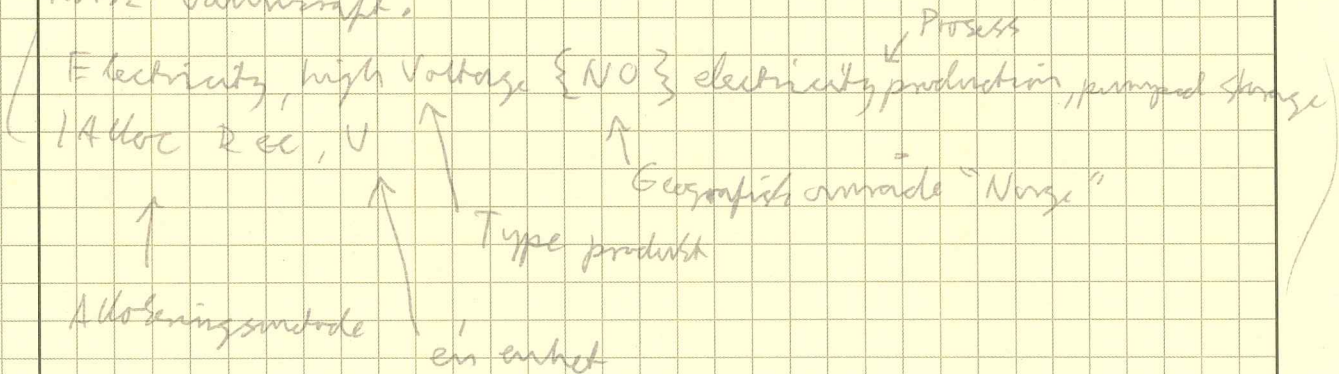 vannkraft.
Prosess
Electricity, high Voltage {NO} electricity production, pumped storage
| Alloc Rec, U
Geografisk område "Norge"
Type produkt
Allokeringsmetode
én enhet